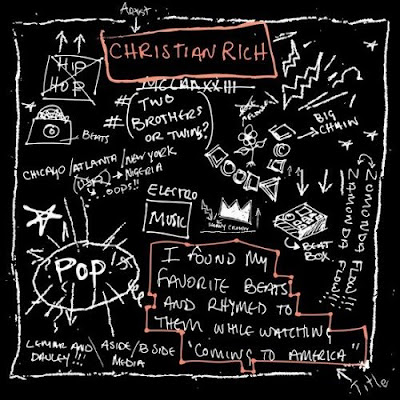 ARTIST
CHRISTIAN RICH
MCCMAXXIII
HIP
HOP
#
#
TWO
BROTHERS
OR TWINS?
BEATS
BIG
CHAIN
CHICAGO/ATLANTA/NEW YORK
NIGERIA
OOPS!!
ELECTRO
MUSIC
BEAT
BOX
ZAMUNDA FLOW!!!
POP!
I FOUND MY
FAVORITE BEATS
AND RHYMED TO
THEM WHILE WATCHING
"COMING TO AMERICA"
LEMAR AND
DAULEY!!!
/ASIDE/BSIDE
MEDIA
Title